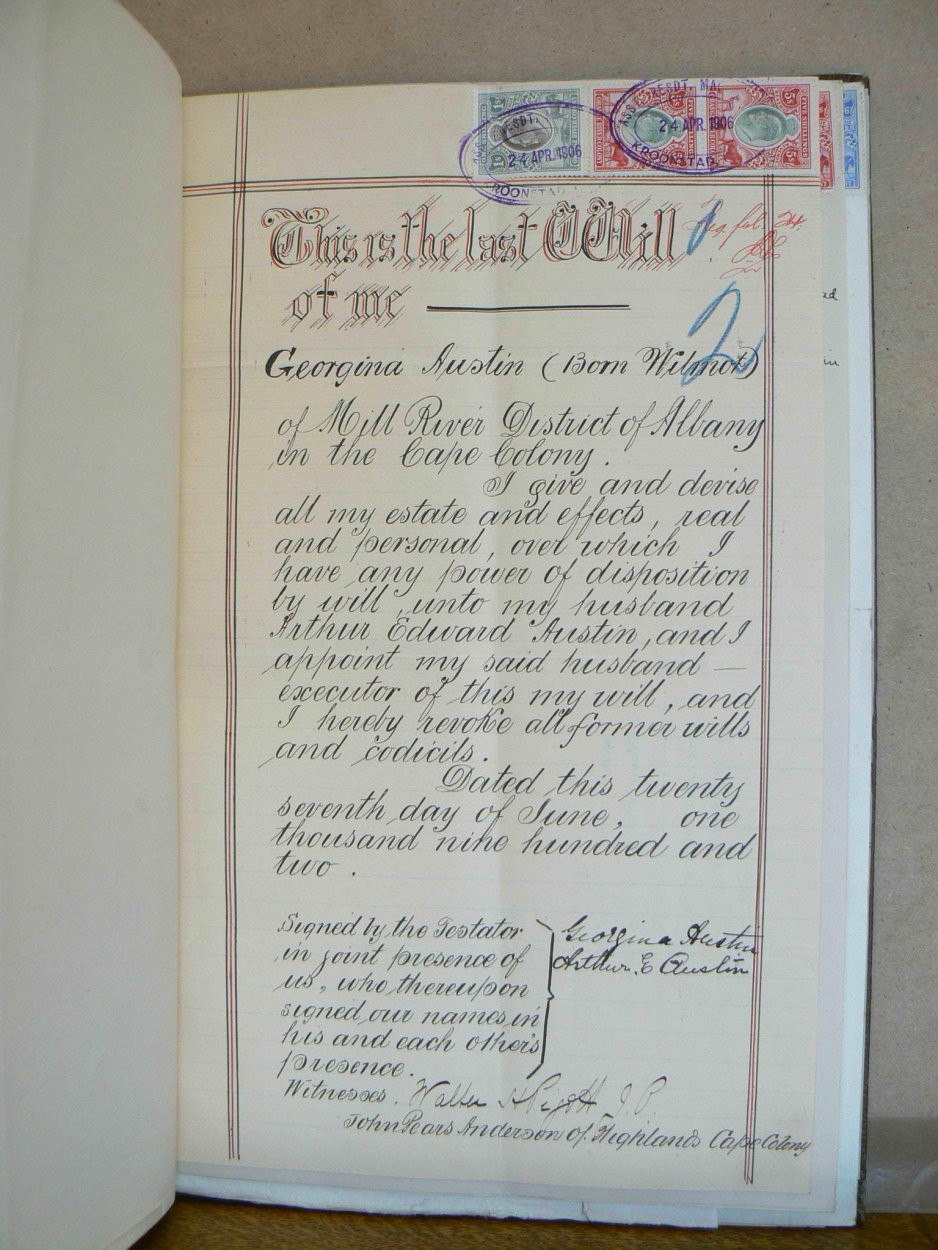 ASST. RESDT.
24 APR. 1906
KROONSTAD
ASST. RESDT. MA
24 APR. 1906
KROONSTAD
FIVE SHILLINGS
5S
This is the last Will
of me
2
Georgina Austin (Born Wilmot)
of Mill River District of Albany
in the Cape Colony.
I give and devise
all my estate and effects, real
and personal, over which I
have any power of disposition
by will, unto my husband
Arthur Edward Austin, and I
appoint my said husband —
executor of this my will, and
I hereby revoke all former wills
and codicils.
Dated this twenty
seventh day of June, one
thousand nine hundred and
two.
Signed by the Testator
in joint presence of
us, who thereupon
signed our names in
his and each other's
presence.
Georgina Austin
Arthur. E Austin
Witnesses. Walter H Pigott J.P.
John Pears Anderson of Highlands Cape Colony